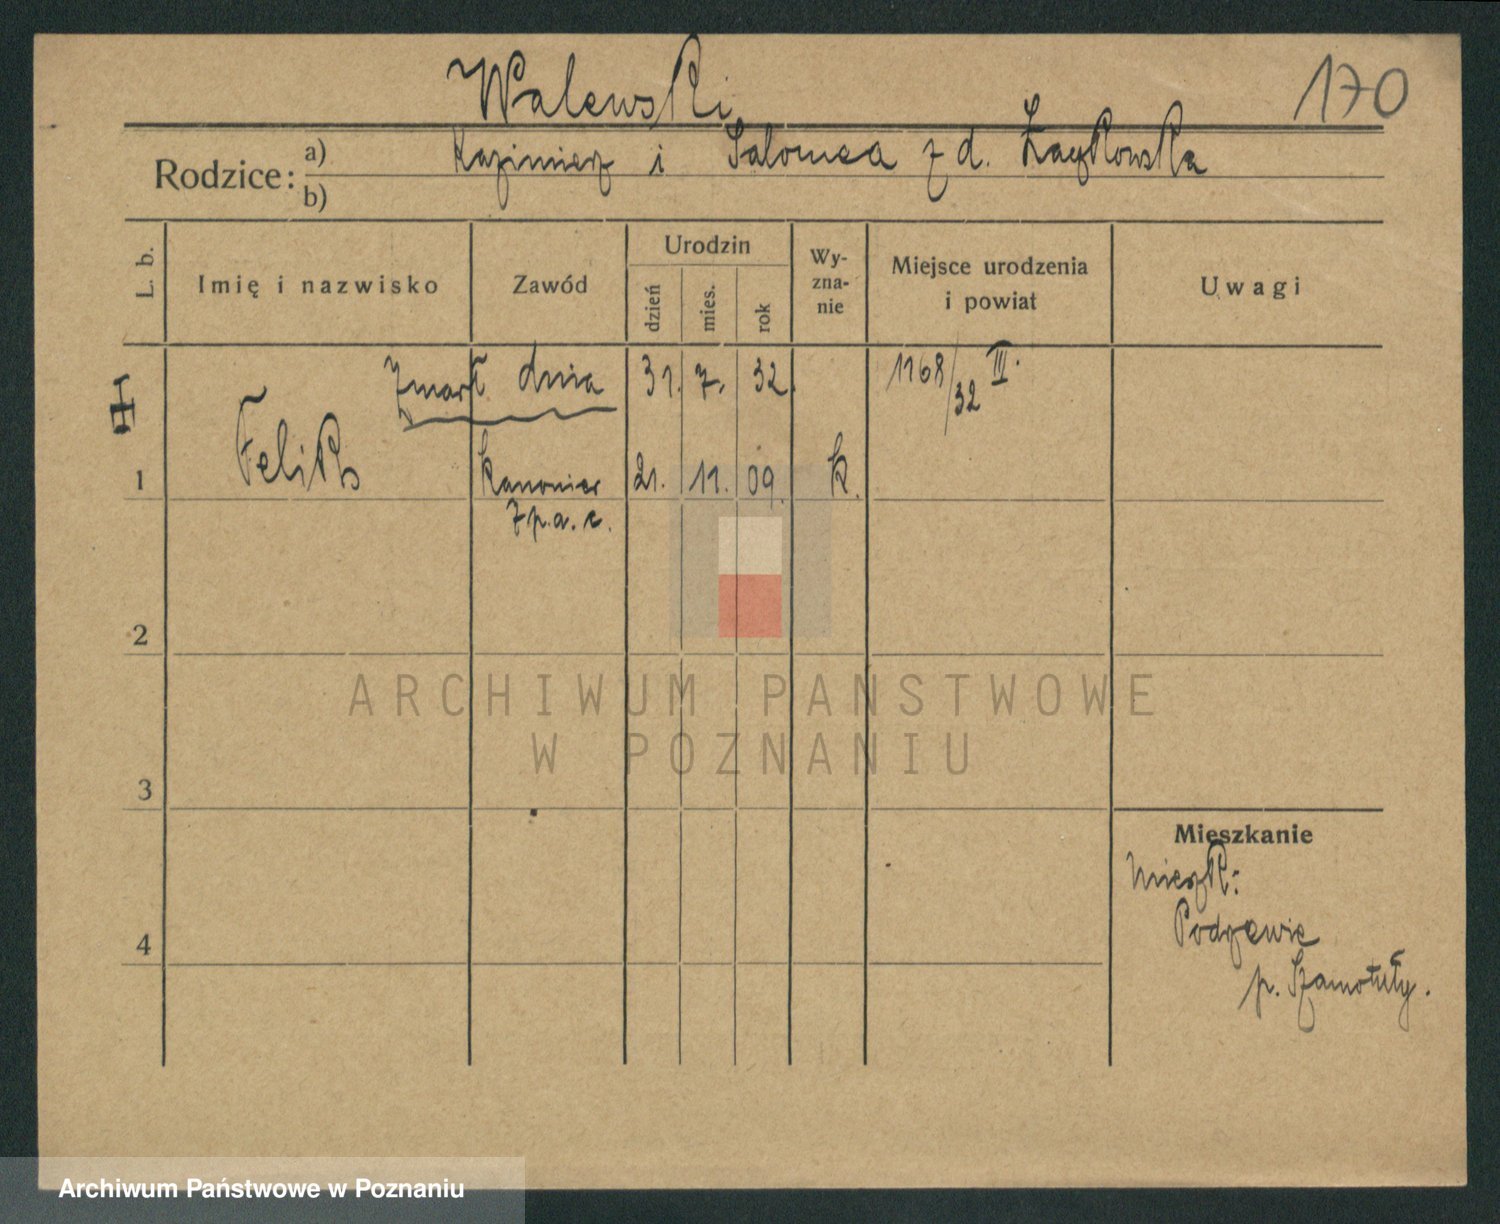 Walewski
170
Rodzice: a) Kazimierz i Salomea z d.
b)
L. b.
Imię i nazwisko
Zawód
Urodzin
dzień
mies.
rok
Wy-
zna-
nie
Miejsce urodzenia
i powiat
Uwagi
Zmarł dnia 31. 7. 32. 1168/32 III.
1 Feliks Kanonier 21. 11. 09. k.
7 p. a. c.
2
ARCHIWUM PAŃSTWOWE
W POZNANIU
3
Mieszkanie
Mieszk:
4
p. Szamotuły.
Archiwum Państwowe w Poznaniu